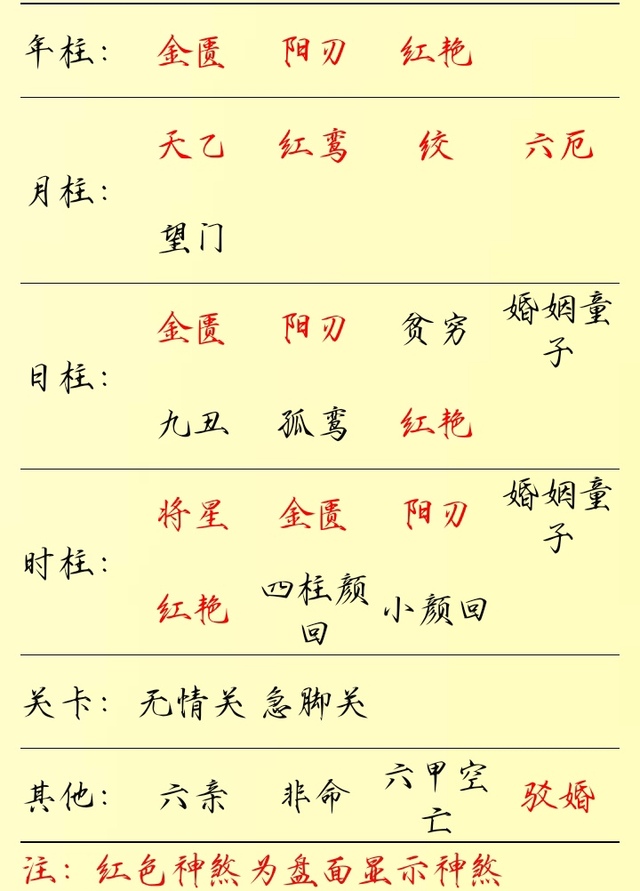 年柱： 金匮 阳刃 红艳
天乙 红鸾 绞 六厄
月柱：
望门
金匮 阳刃 贫穷 婚姻童子
日柱：
九丑 孤鸾 红艳
将星 金匮 阳刃 婚姻童子
时柱：
红艳 四柱颜回 小颜回
关卡： 无情关 急脚关
其他： 六亲 非命 六甲空亡 驳婚
注：红色神煞为盘面显示神煞